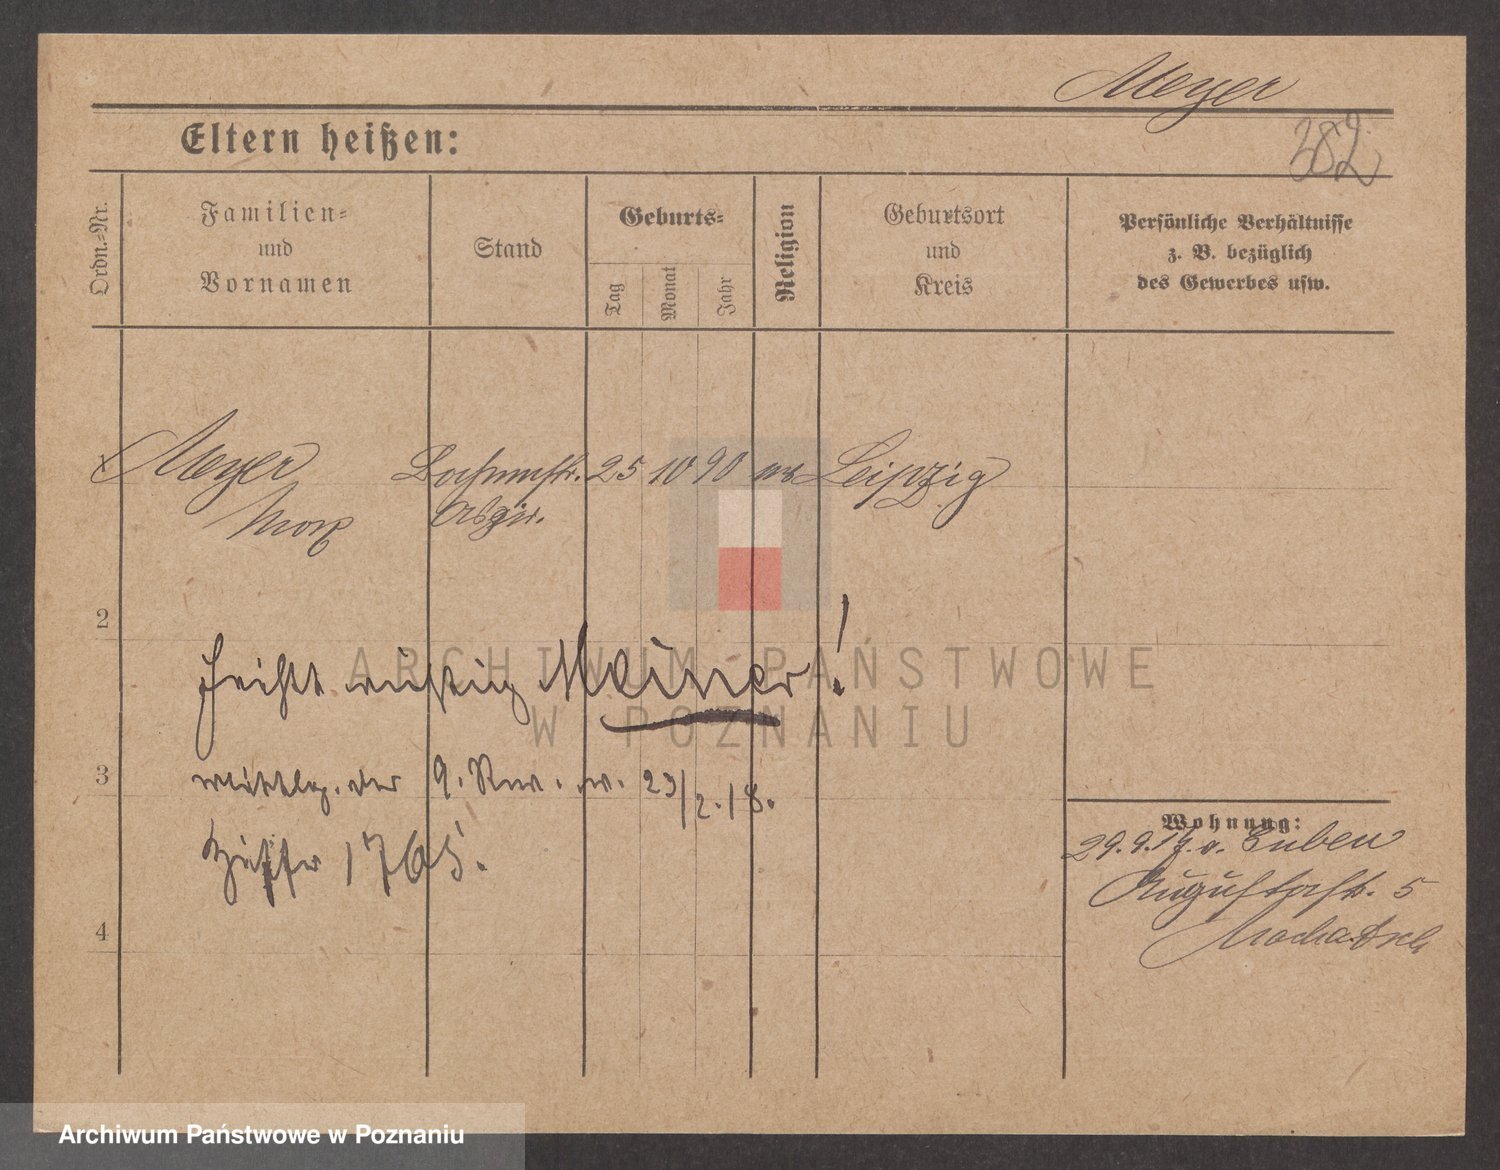 Meyer
382
Eltern heißen:
Ordn.-Nr.
Familien-
und
Vornamen
Stand
Geburts-
Tag
Monat
Jahr
Religion
Geburtsort
und
Kreis
Persönliche Verhältnisse
z. B. bezüglich
des Gewerbes usw.
1 Meyer 25 10 90 Leipzig
Max
2
heißt richtig Meiner!
ARCHIWUM PAŃSTWOWE
W POZNANIU
3
der 9. Rev. v. 23/2.18.
1765.
4
Wohnung:
29.9.17. v. Guben
Augustastr. 5
Archiwum Państwowe w Poznaniu